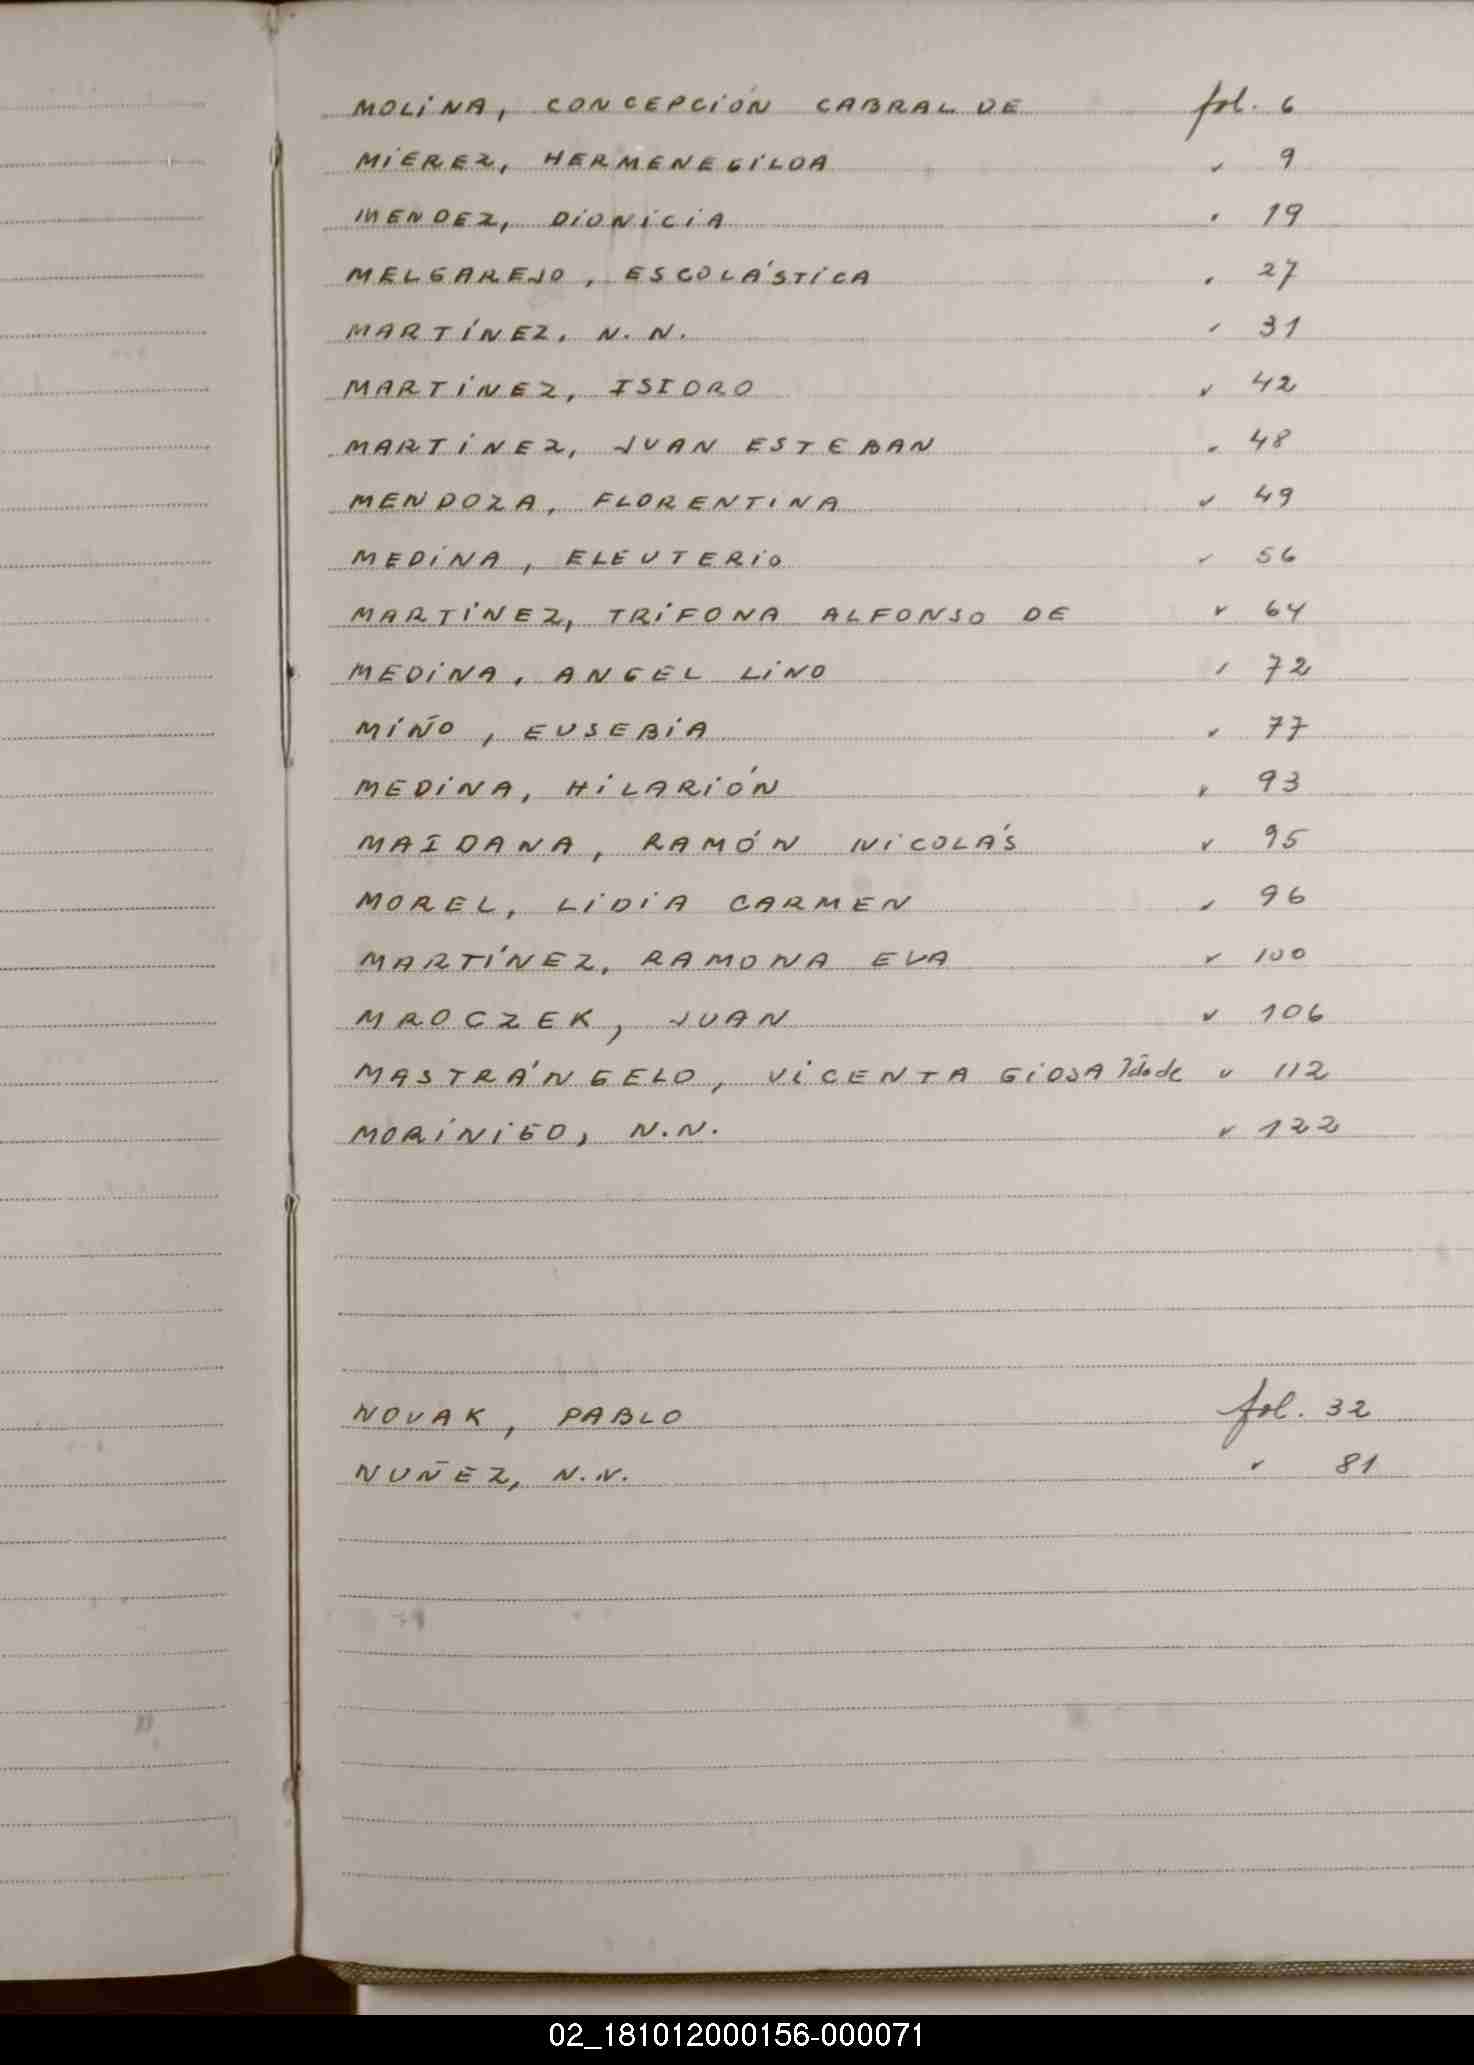 MOLINA, CONCEPCIÓN CABRAL DE fol. 6
MIEREZ, HERMENEGILDA " 9
MENDEZ, DIONICIA " 19
MELGAREJO, ESCOLÁSTICA " 27
MARTÍNEZ, N.N. " 31
MARTINEZ, ISIDRO " 42
MARTINEZ, JUAN ESTEBAN " 48
MENDOZA, FLORENTINA " 49
MEDINA, ELEUTERIO " 56
MARTINEZ, TRIFONA ALFONSO DE " 64
MEDINA, ANGEL LINO " 72
MIÑO, EUSEBIA " 77
MEDINA, HILARIÓN " 93
MAIDANA, RAMÓN NICOLÁS " 95
MOREL, LIDIA CARMEN " 96
MARTÍNEZ, RAMONA EVA " 100
MROCZEK, JUAN " 106
MASTRÁNGELO, VICENTA GIOSA " 112
MORINIGO, N.N. " 122
NOVAK, PABLO fol. 32
NUÑEZ, N.N. " 81
02_181012000156-000071